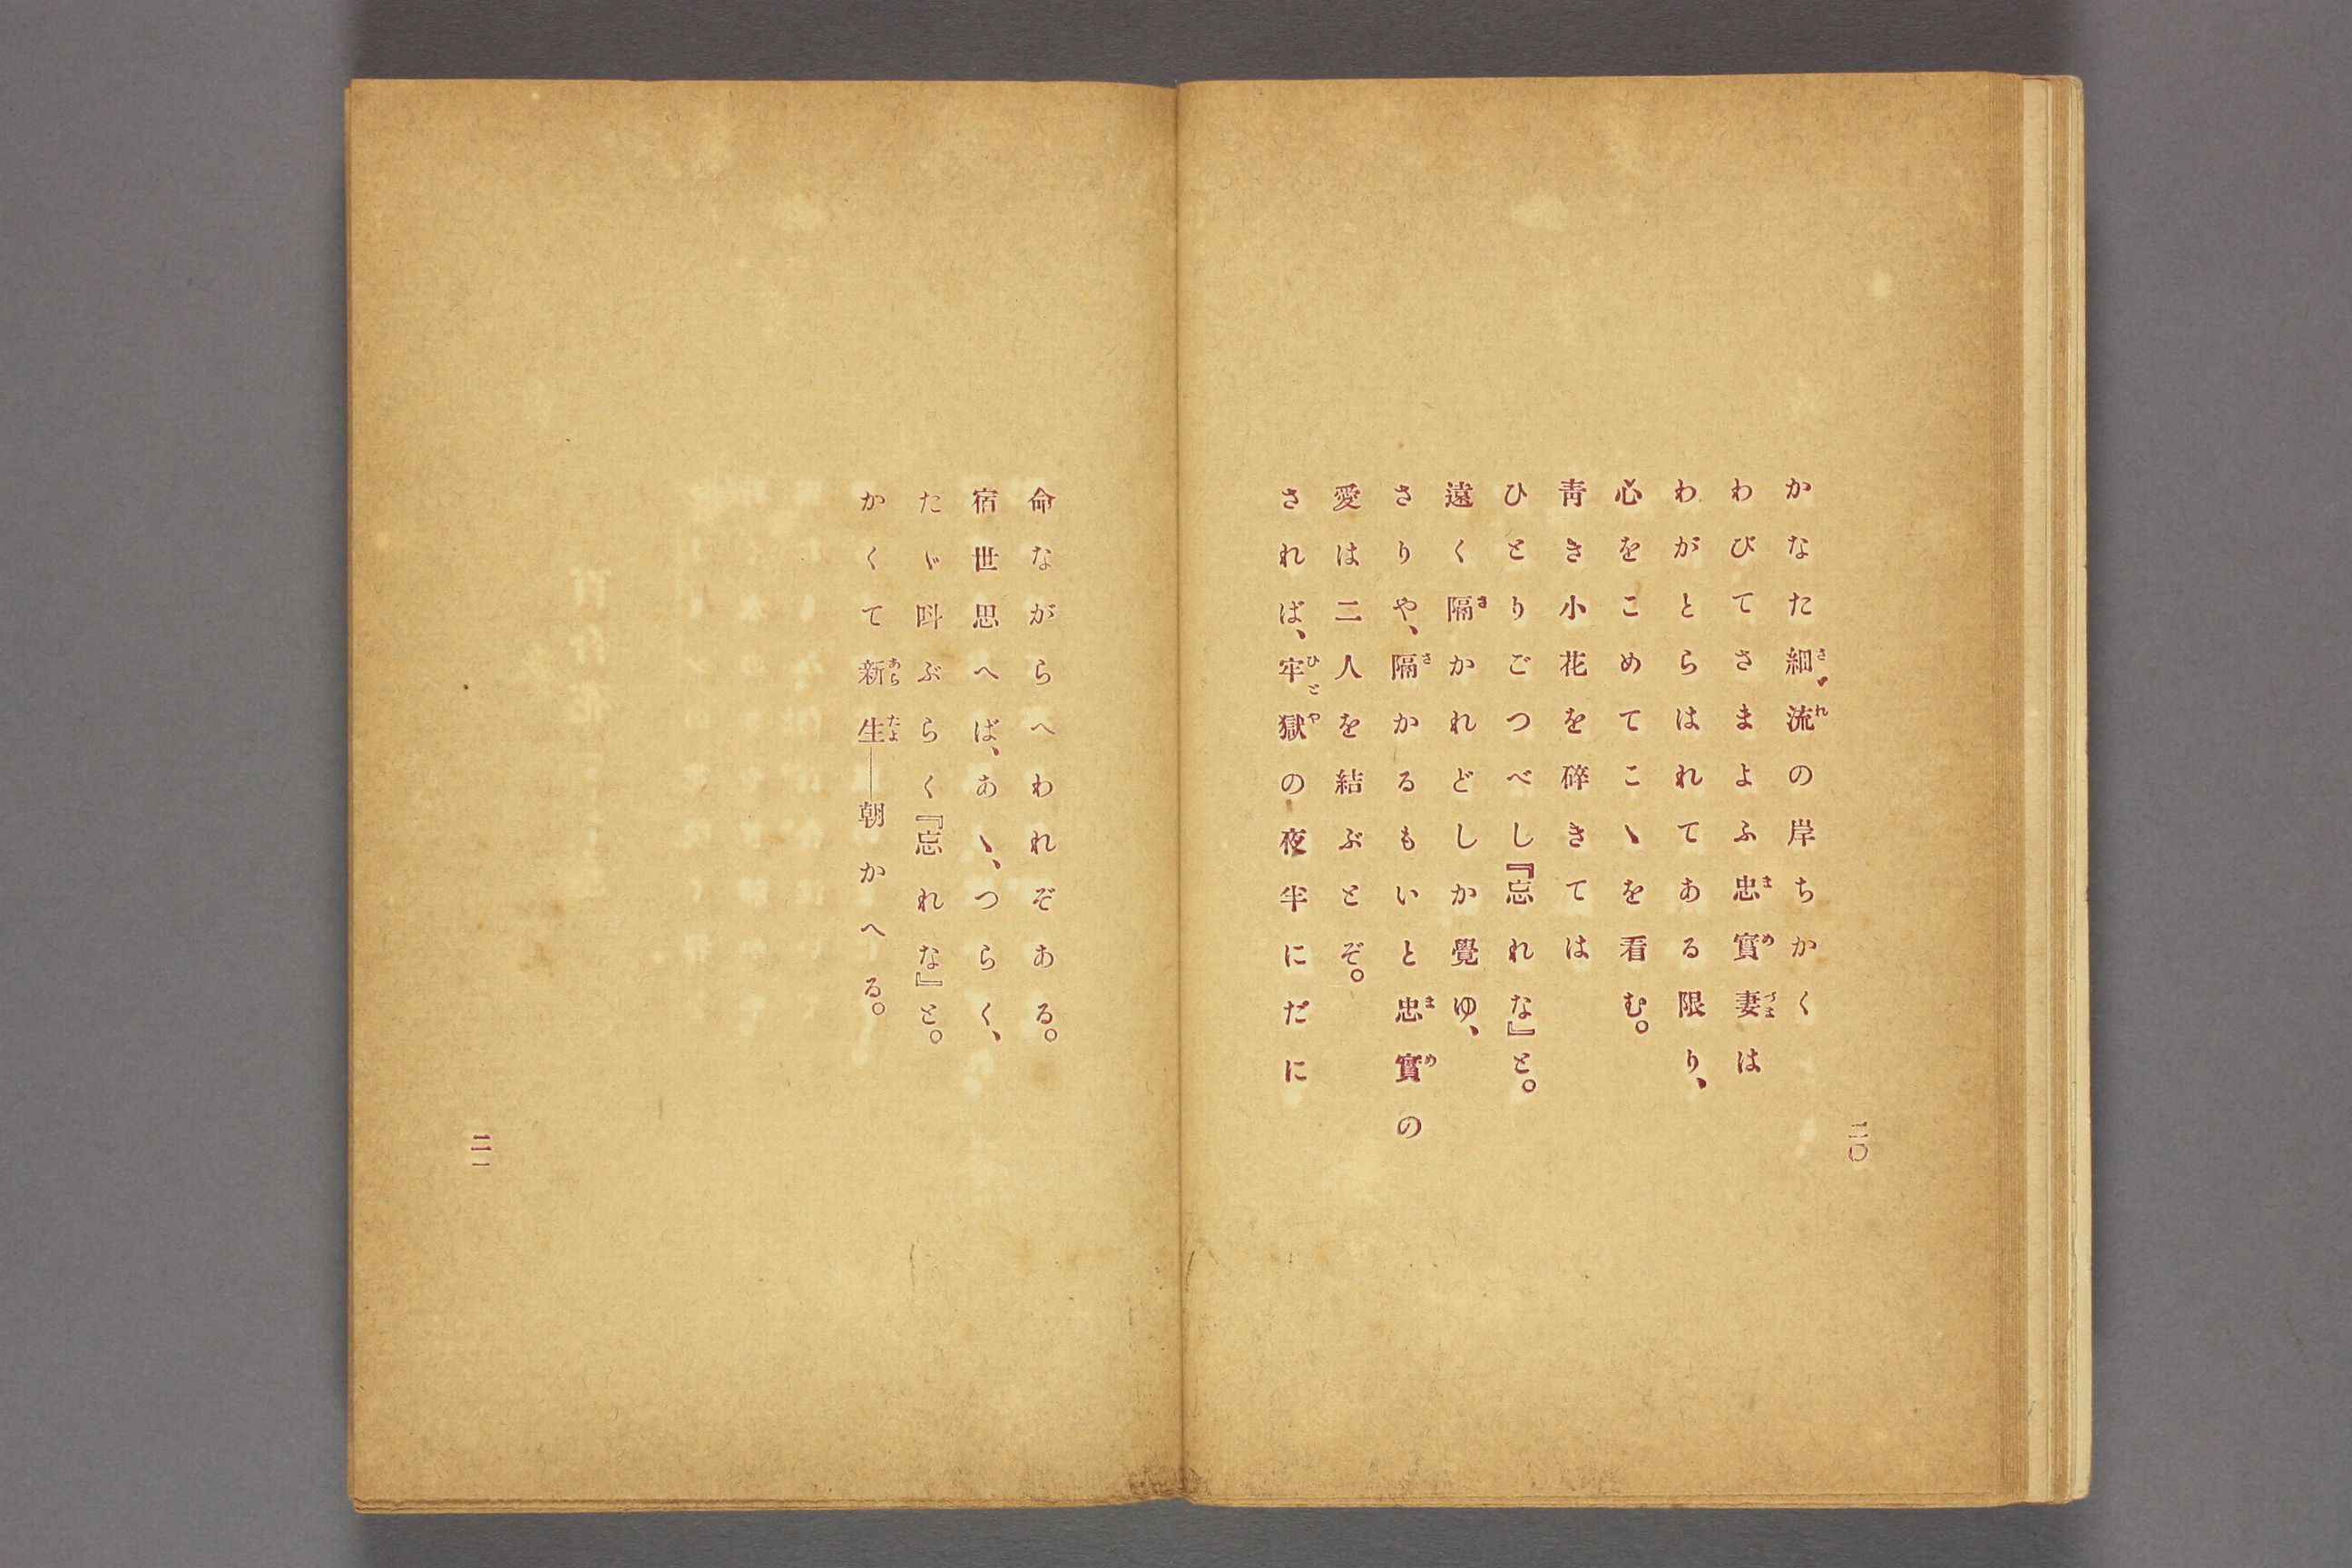 二〇
かなた細流の岸ちかく
わびてさまよふ忠實妻は
わがとらはれてある限り、
心をこめてこゝを看む。
靑き小花を碎きては
ひとりごつべし『忘れな』と。
遠く隔かれどしか覺ゆ、
さりや、隔かるもいと忠實の
愛は二人を結ぶとぞ。
されば、牢獄の夜半にだに
命ながらへわれぞある。
宿世思へば、あゝ、つらく、
たゞ呌ぶらく『忘れな』と。
かくて新生―朝かへる。
二一